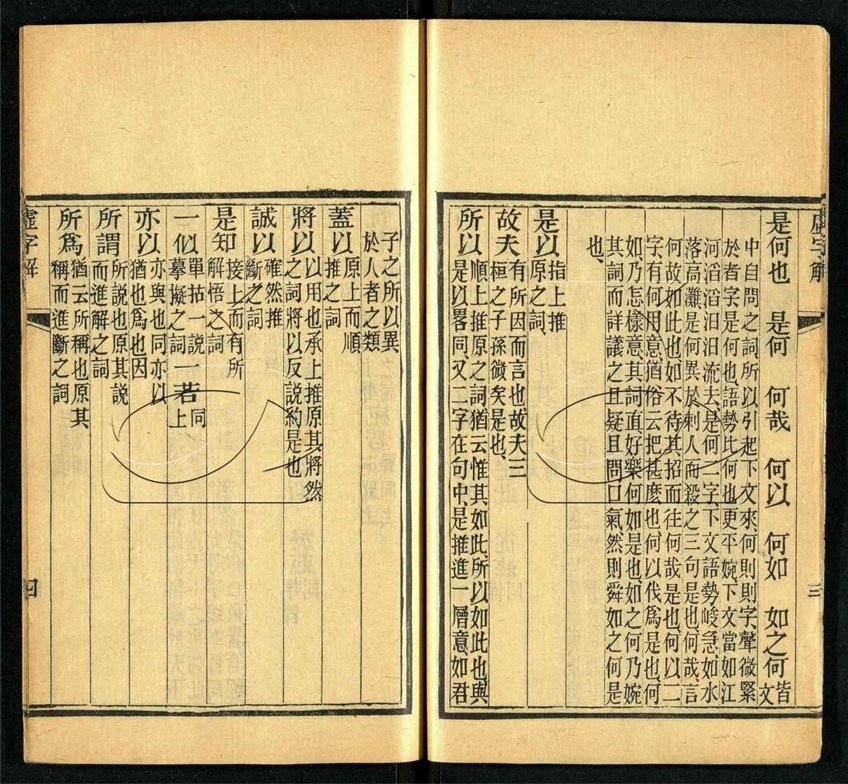 虛字解
三
是何也 是何 何哉 何以 何如 如之何皆文
中自問之詞所以引起下文來、何則則字、聲微緊
於者字是何也、語勢比何也更平婉、下文當如江
河滔滔汩汩流去、是何二字、下文語勢峻急、如水
落高灘是何異於刺人而殺之三句是也、何哉、言
何故如此也、如不待其招而往何哉是也、何以二
字有何用意猶俗云把甚麽也、何以伐爲是也、何
如、乃怎樣意、其詞直、好樂何如是也、如之何乃婉
其詞而詳議之、且疑且問口氣、然則舜如之何是
也、
是以指上推原之詞、
故夫有所因而言也、故夫三桓之子孫微矣是也、
所以順上推原之詞、猶云惟其如此、所以如此也、與
是以畧同、又二字在句中、是推進一層意、如君
子之所以異
於人者之類
蓋以原上而順推之詞
將以以用也承上推原其將然之詞將以反說約是也
誠以確然推斷之詞
是知接上而有所解悟之詞
一似單拈一說摹擬之詞 一若同上
亦以亦與也同亦以猶也爲也因
所謂所說也原其說而進解之詞
所爲猶云所稱也原其稱而進斷之詞
虛字解
四